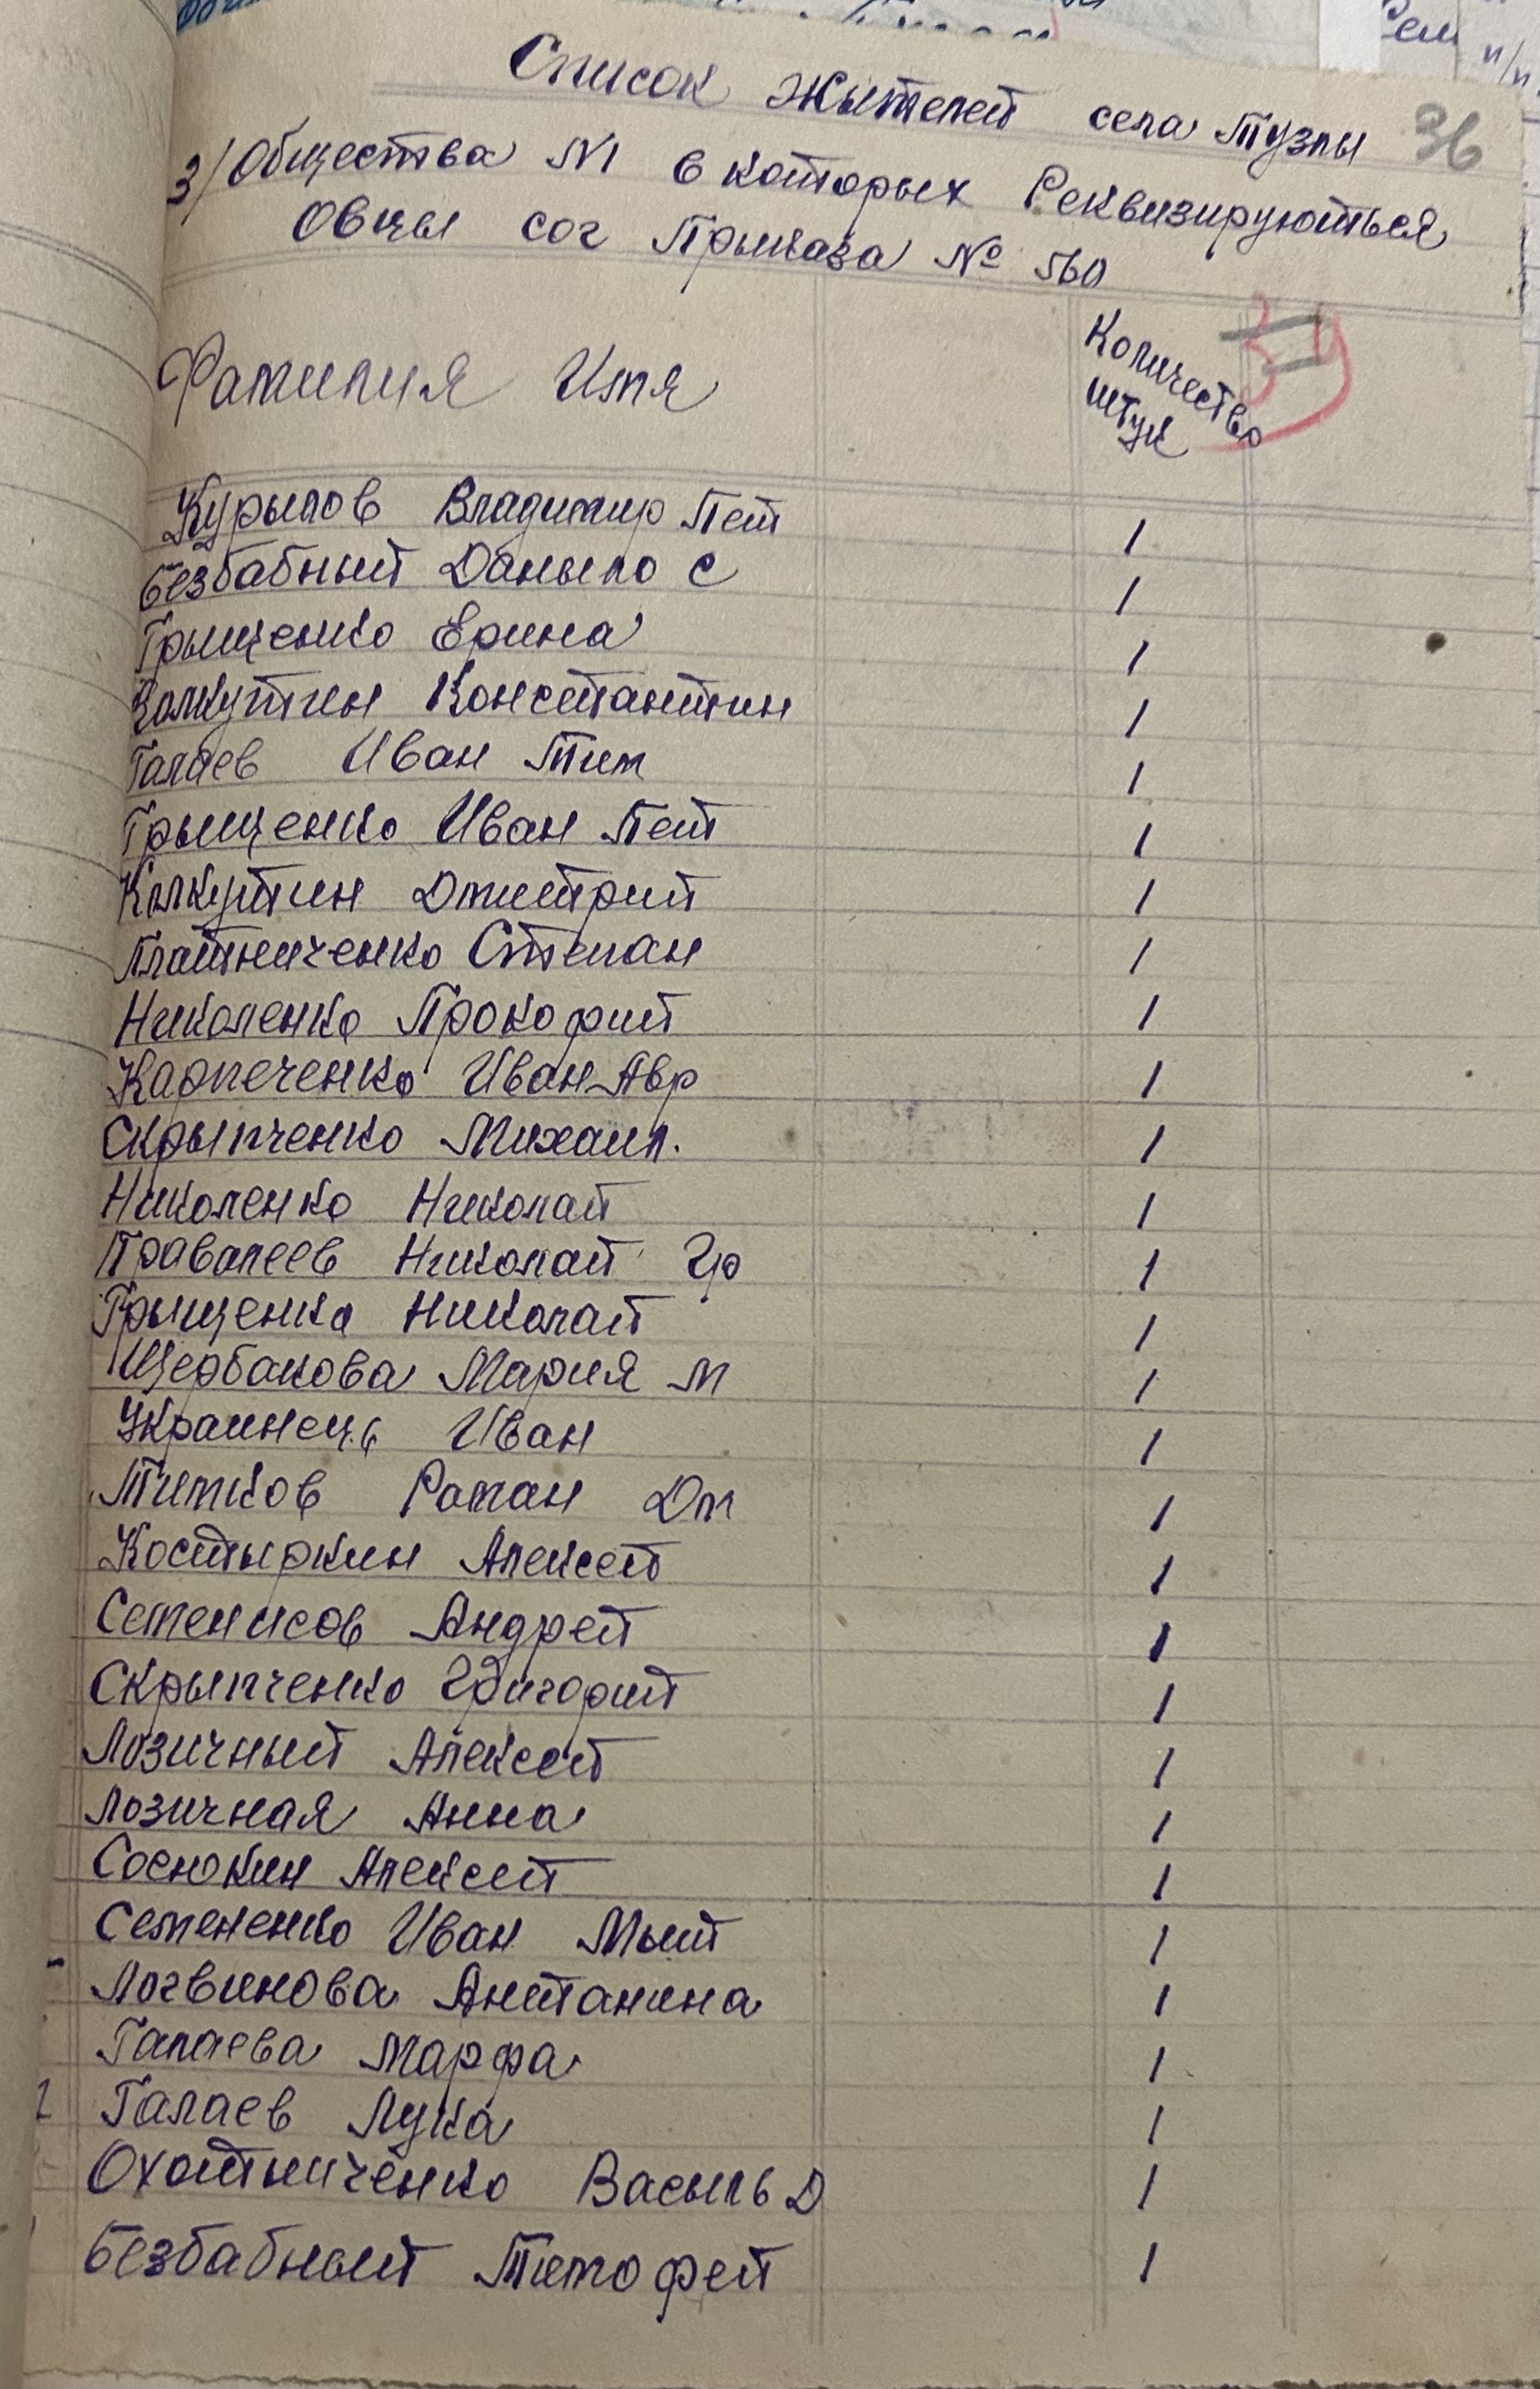 Список жытелей села Тузлы 36
3/ Общества №1 в которых Реквизируються
Овцы сог Прыказа № 560
Фамилия Имя
Количество
штук
Курылов Владимир Пет 1
Безбабный Даныло С 1
Грыценко Ерина 1
Колкутин Константин 1
Галаев Иван Тим 1
Грыценко Иван Пет 1
Колкутин Дмитрий 1
Платниченко Степан 1
Николенко Прокофий 1
Карпеченко Иван Авр 1
Скрыпченко Михаил. 1
Николенко Николай 1
Правалеев Николай Гр 1
Грыценко Николай 1
Щербакова Мария М 1
Украинець Иван 1
Титков Роман Дм 1
Костыркин Алексей 1
Семенисов Андрей 1
Скрыпченко Григорий 1
Лозичный Алексей 1
Лозичная Анна 1
Соснокин Алексей 1
Семененко Иван Мыт 1
Логвинова Антанина 1
Галаева Марфа 1
Галаев Лука 1
Охотниченко Василь Д 1
Безбабный Тимофей 1